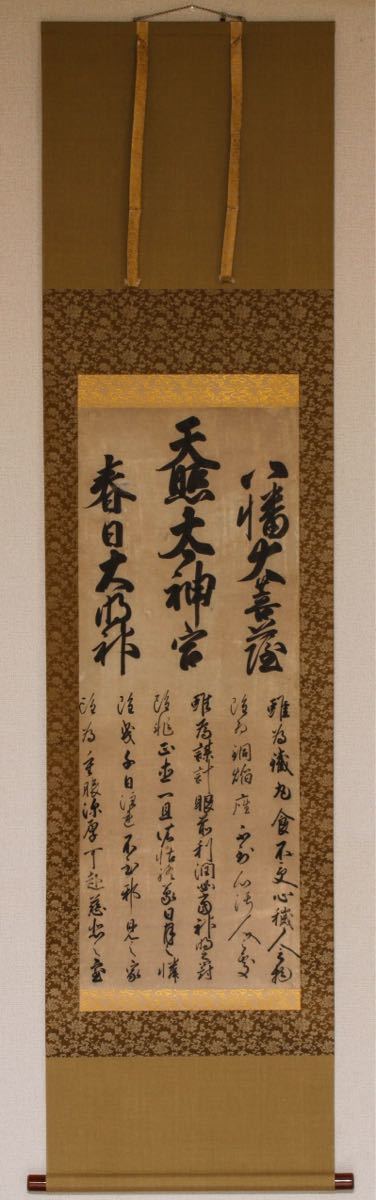 八幡大菩薩
天照太神宮
春日大明神
雖為鐵丸食不受心穢人之物
雖為銅焰座不到心濁人之處
雖為謀計眼前利潤必當神明之罸
雖非正直一旦依怙終蒙日月之憐
雖曳千日注連不到邪見之家
雖為重服深厚可趣慈悲之室